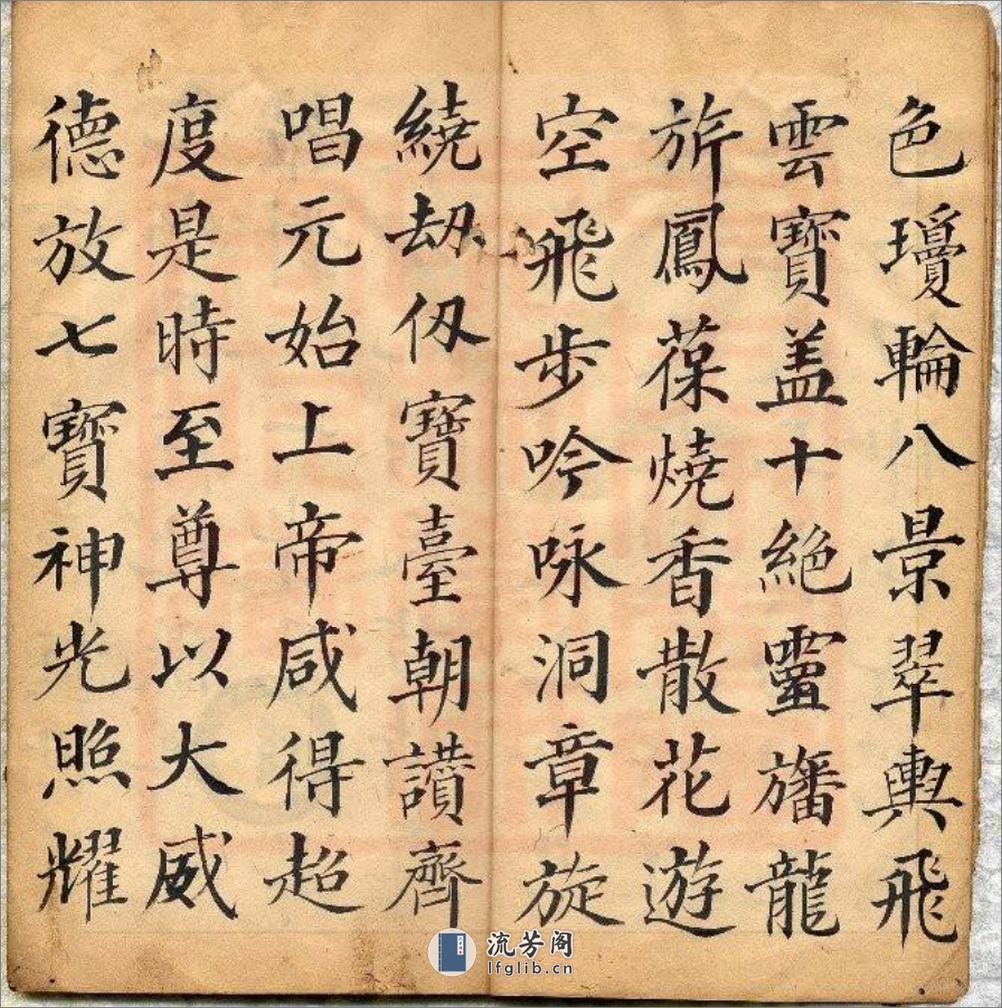 色瓊輪八景翠輿飛
雲寶盖十絕靈旛龍
旂鳳葆燒香散花遊
空飛步吟咏洞章旋
繞劫仞寶臺朝讃齊
唱元始上帝咸得超
度是時至尊以大威
德放七寶神光照耀
流芳阁
lfglib.cn